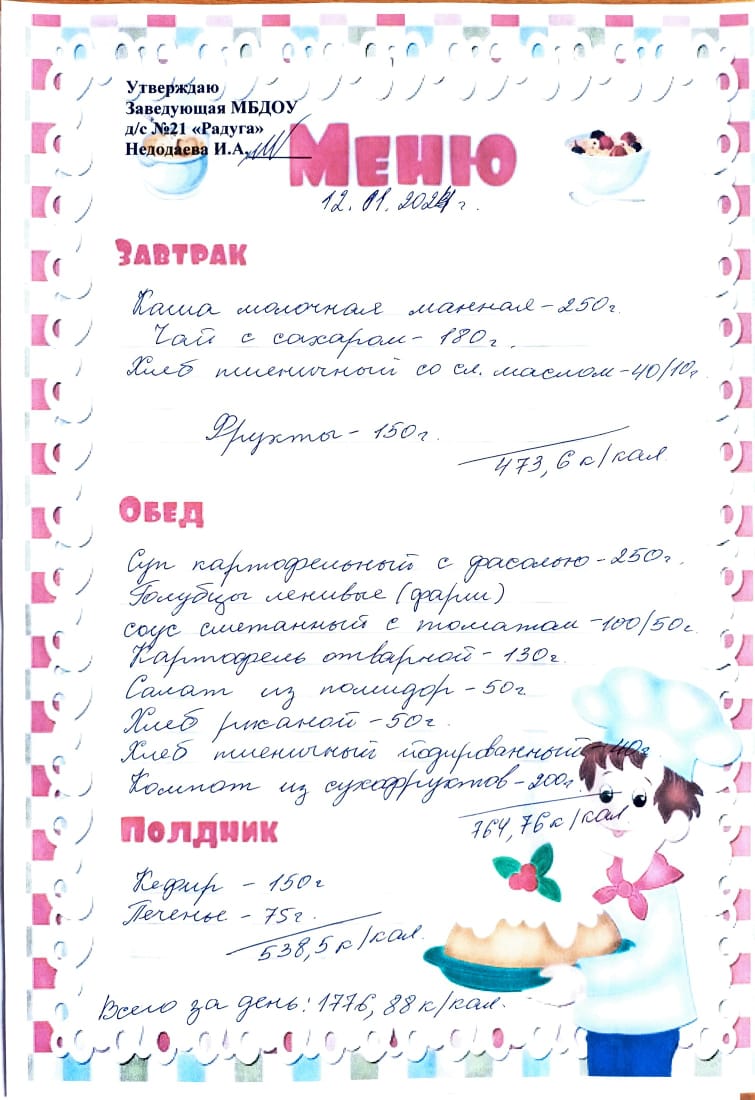 Утверждаю
Заведующая МБДОУ
д/с №21 «Радуга»
Недодаева И.А.
Меню
12.01.2024г.
Завтрак
Каша молочная манная-250г.
Чай с сахаром-180г.
Хлеб пшеничный со сл. маслом-40/10г.
Фрукты-150г.
473,6к/кал.
Обед
Суп картофельный с фасолью-250г.
Голубцы ленивые (фарш)
соус сметанный с томатом-100/50г.
Картофель отварной-130г.
Салат из помидор-50г
Хлеб ржаной-50г.
Хлеб пшеничный йодированный-40г.
Компот из сухофруктов-200г
764,76к/кал.
Полдник
Кефир - 150г
Печенье-75г.
538,5к/кал.
Всего за день: 1776,88к/кал.